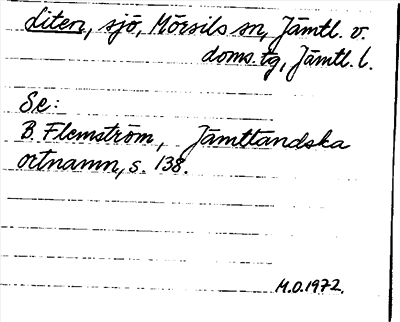 Liten, sjö, Mörsils sn, Jämtl. v.
doms.tg, Jämtl. l.
Se:
B. Flemström, Jämtlandska
ortnamn, s. 138.
M.O.1972.